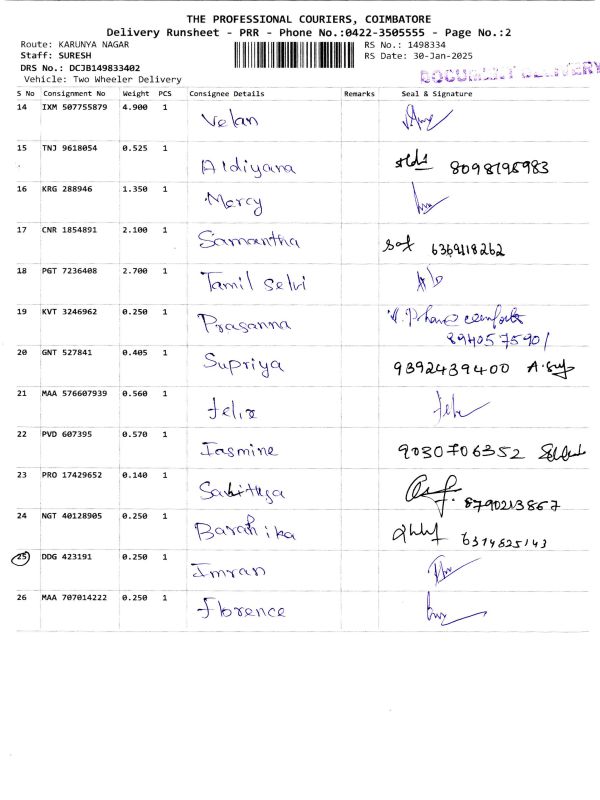 THE PROFESSIONAL COURIERS, COIMBATORE
Delivery Runsheet - PRR - Phone No.:0422-3505555 - Page No.:2
Route: KARUNYA NAGAR RS No.: 1498334
Staff: SURESH RS Date: 30-Jan-2025
DRS No.: DCJB149833402
Vehicle: Two Wheeler Delivery DOCUMENT DELIVERY
S No Consignment No Weight PCS Consignee Details Remarks Seal & Signature
14 IXM 507755879 4.900 1 Velan
15 TNJ 9618054 0.525 1 Aldiyana 8098198983
16 KRG 288946 1.350 1 Mercy
17 CNR 1854891 2.100 1 Samantha 6369118262
18 PGT 7236408 2.700 1 Tamil Selvi
19 KVT 3246962 0.250 1 Prasanna
8940575901
20 GNT 527841 0.405 1 Supriya 9392439400
21 MAA 576607939 0.560 1 felix
22 PVD 607395 0.570 1 Iasmine 9030706352
23 PRO 17429652 0.140 1 8790213867
24 NGT 40128905 0.250 1 Barathika 6374825143
25 DDG 423191 0.250 1 Imran
26 MAA 707014222 0.250 1 florence